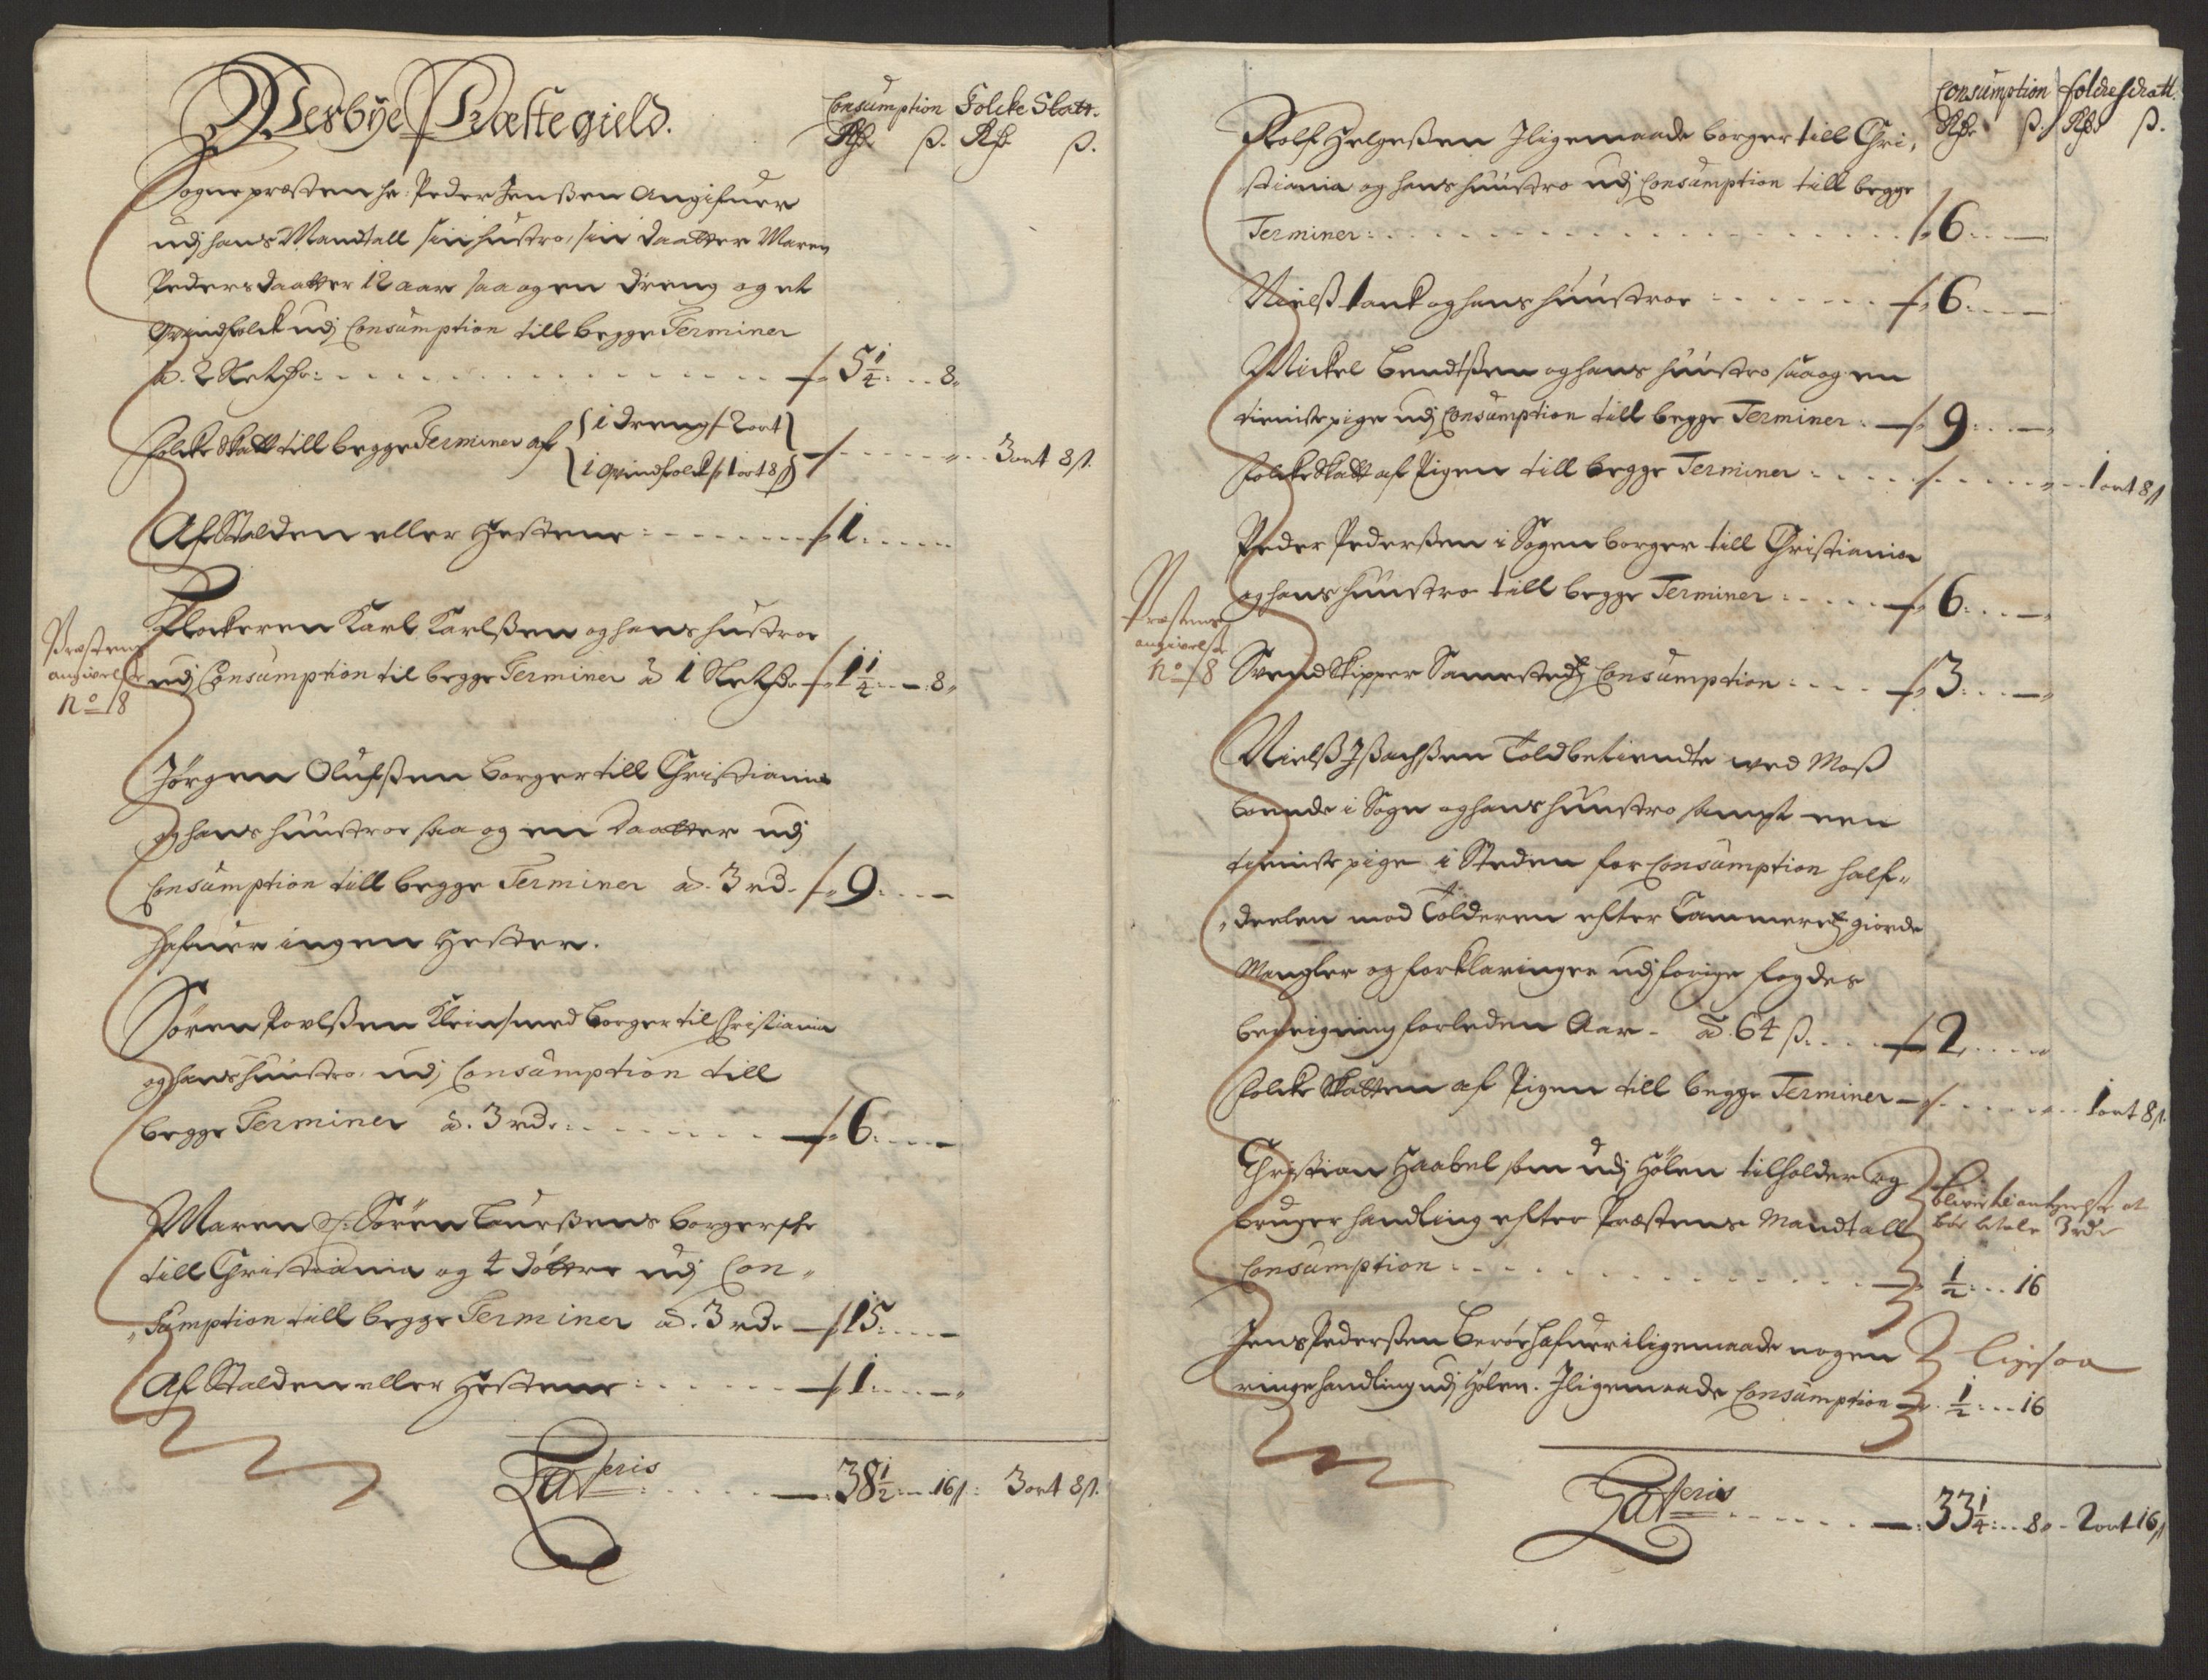 Wesbye Præstegield.
Consumption Folcke Skatt.
Rdr ß. Rdr ß.
Sognepræsten hr: Peder Jenßen Angifuer
udj hans Mandtall sin hustro, sin daatter Maren
Pedersdaatter 12 aar saa og en dreng og et
qvindfolck udj Consumption till begge Terminer
a. 2 Sletdr: 5 1/4 8
Folcke Skatt till begge Terminer af { 1 dreng 2 ort } { 1 qvindfolck 1 ort 8 ß } 3 ort 8 ß.
Af Stalden eller Hestene 1
Præstens
angivelse
No 18
Klockeren Karl Karlßen og hans hustroe
udj Consumption til begge Terminer a 1 Sletdr 1 1/4 8
Jørgen Olufßen borger till Christiania
og hans huustroe saa og en daatter udj
Consumption till begge Terminer a. 3 rd. 9
hafuer ingen Hester.
Søren Povlßen Kleinsmed borger til Christiania
og hans huustro, udj Consumption till
begge Terminer a. 3 rd. 6
Maren Sl: Søren Laurßens borgerske
till Christiania og 4 døttre udj Con„
„sumption till begge Terminer a. 3 rd. 15
Af Stalden eller Hestene 1
Lateris 38 1/2 16 ß. 3 ort 8 ß.
Consumption folckeskatt.
Rdr ß. Rdr ß.
Rolf Helgeßen Jligemaade borger till Chri„
stiania og hans huustro udj Consumption till begge
Terminer 6
Nielß Tank og hans huustroe 6
Mickel Bendtßen og hans huustro saa og en
tieniste pige udj Consumption till begge Terminer 9
Folcke Skatt af Pigen till begge Terminer 1 ort 8 ß
Peder Pederßen i Sogen borger till Christiania
og hans huustro till begge Terminer 6
Præstens
angivelse
No 18
Svend Skipper Samested Consumption 3
Nielß Jßachßen Toldbetiendte ved Moß
boende i Sogn og hans huustro sampt een
tieniste pige i Steden for Consumption half„
„deelen mod Tolderen efter Cammeretz giorde
Mangler og forklaringer udj forige fogdes
beregning forleden Aar - a. 64 ß. 2
Folcke Skatten af Pigen till begge Terminer 1 ort 8 ß.
Christian Haabel som udj Hølen tilholder og
bruger handling efter Præstens Mandtall
Consumption 1/2 16
bør betale 3 rd
Jens Pederßen hafuer iligemaade nogen
ringe handling udj Hølen. Jligemaade Consumption 1/2 16
ligesaa
Lateris 33 1/4 8 2 ort 16 ß